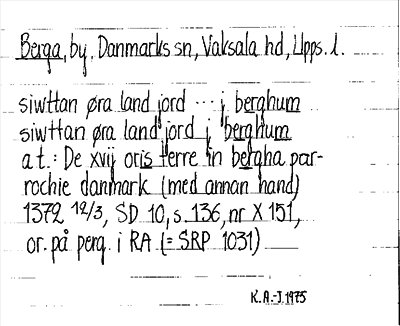 Berga, by, Danmarks sn, Vaksala hd, Upps. l.
siwttan øra land jord ... j berghum
siwttan øra land jord j berghum
at.: De xvij oris terre in bergha par-
rochie danmark (med annan hand)
1372 12/3, SD 10, s. 136, nr X 151,
or. på perg. i RA (= SRP 1031)
K.A.-J. 1975